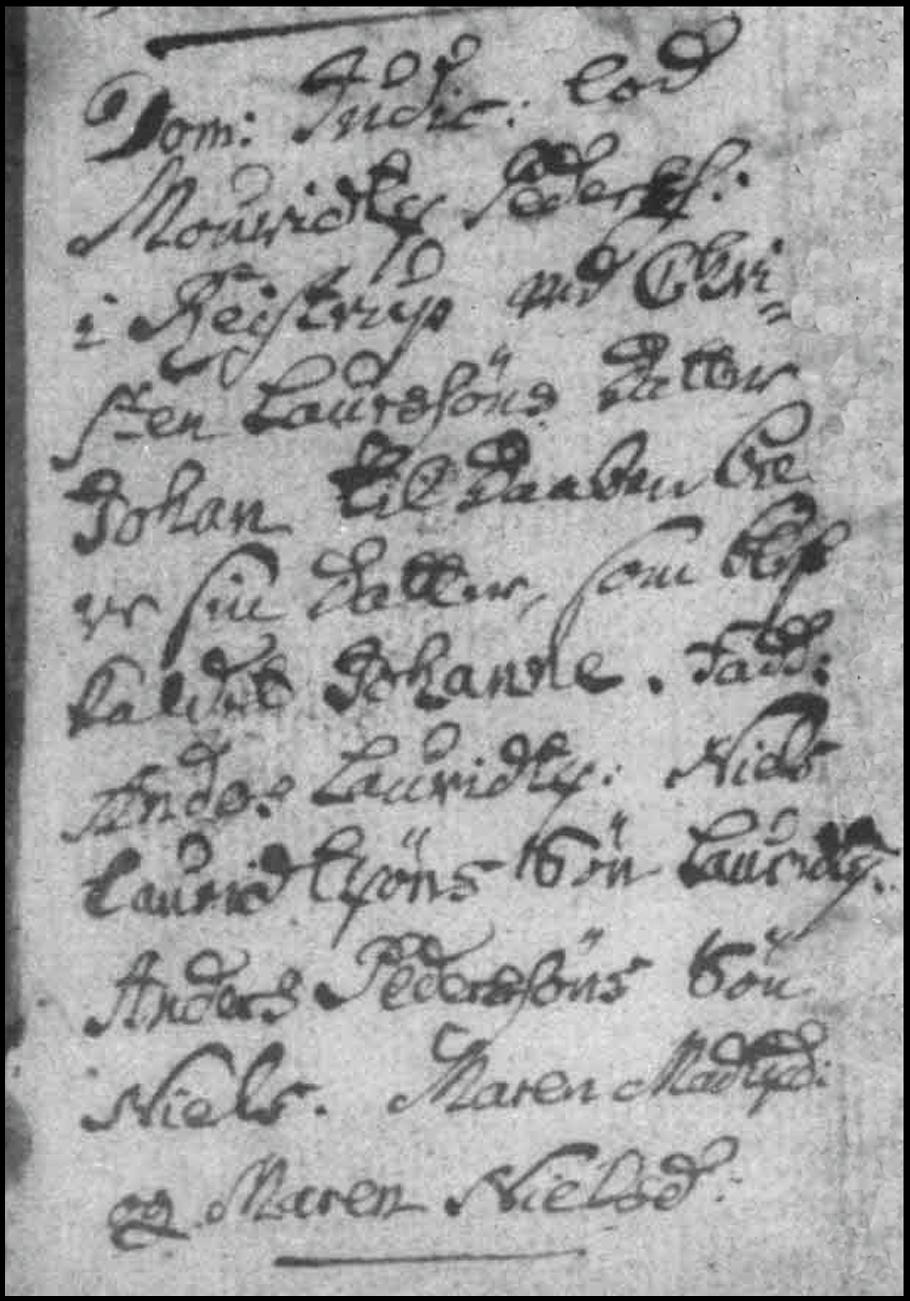 Dom: Judic: lod
Mouridtz Peders.:
i Rejstrup ved Chri=
sten Laursöns datter
Johan til daaben bæ
re sin datter, som blef
kaldet Johanne. Fadd:
Anders Lauridtz: Niels
Lauridtzöns Sön Lauridtz.
Anders Pedersöns Sön
Niels. Maren Madtzd:
og Maren Nielsd: